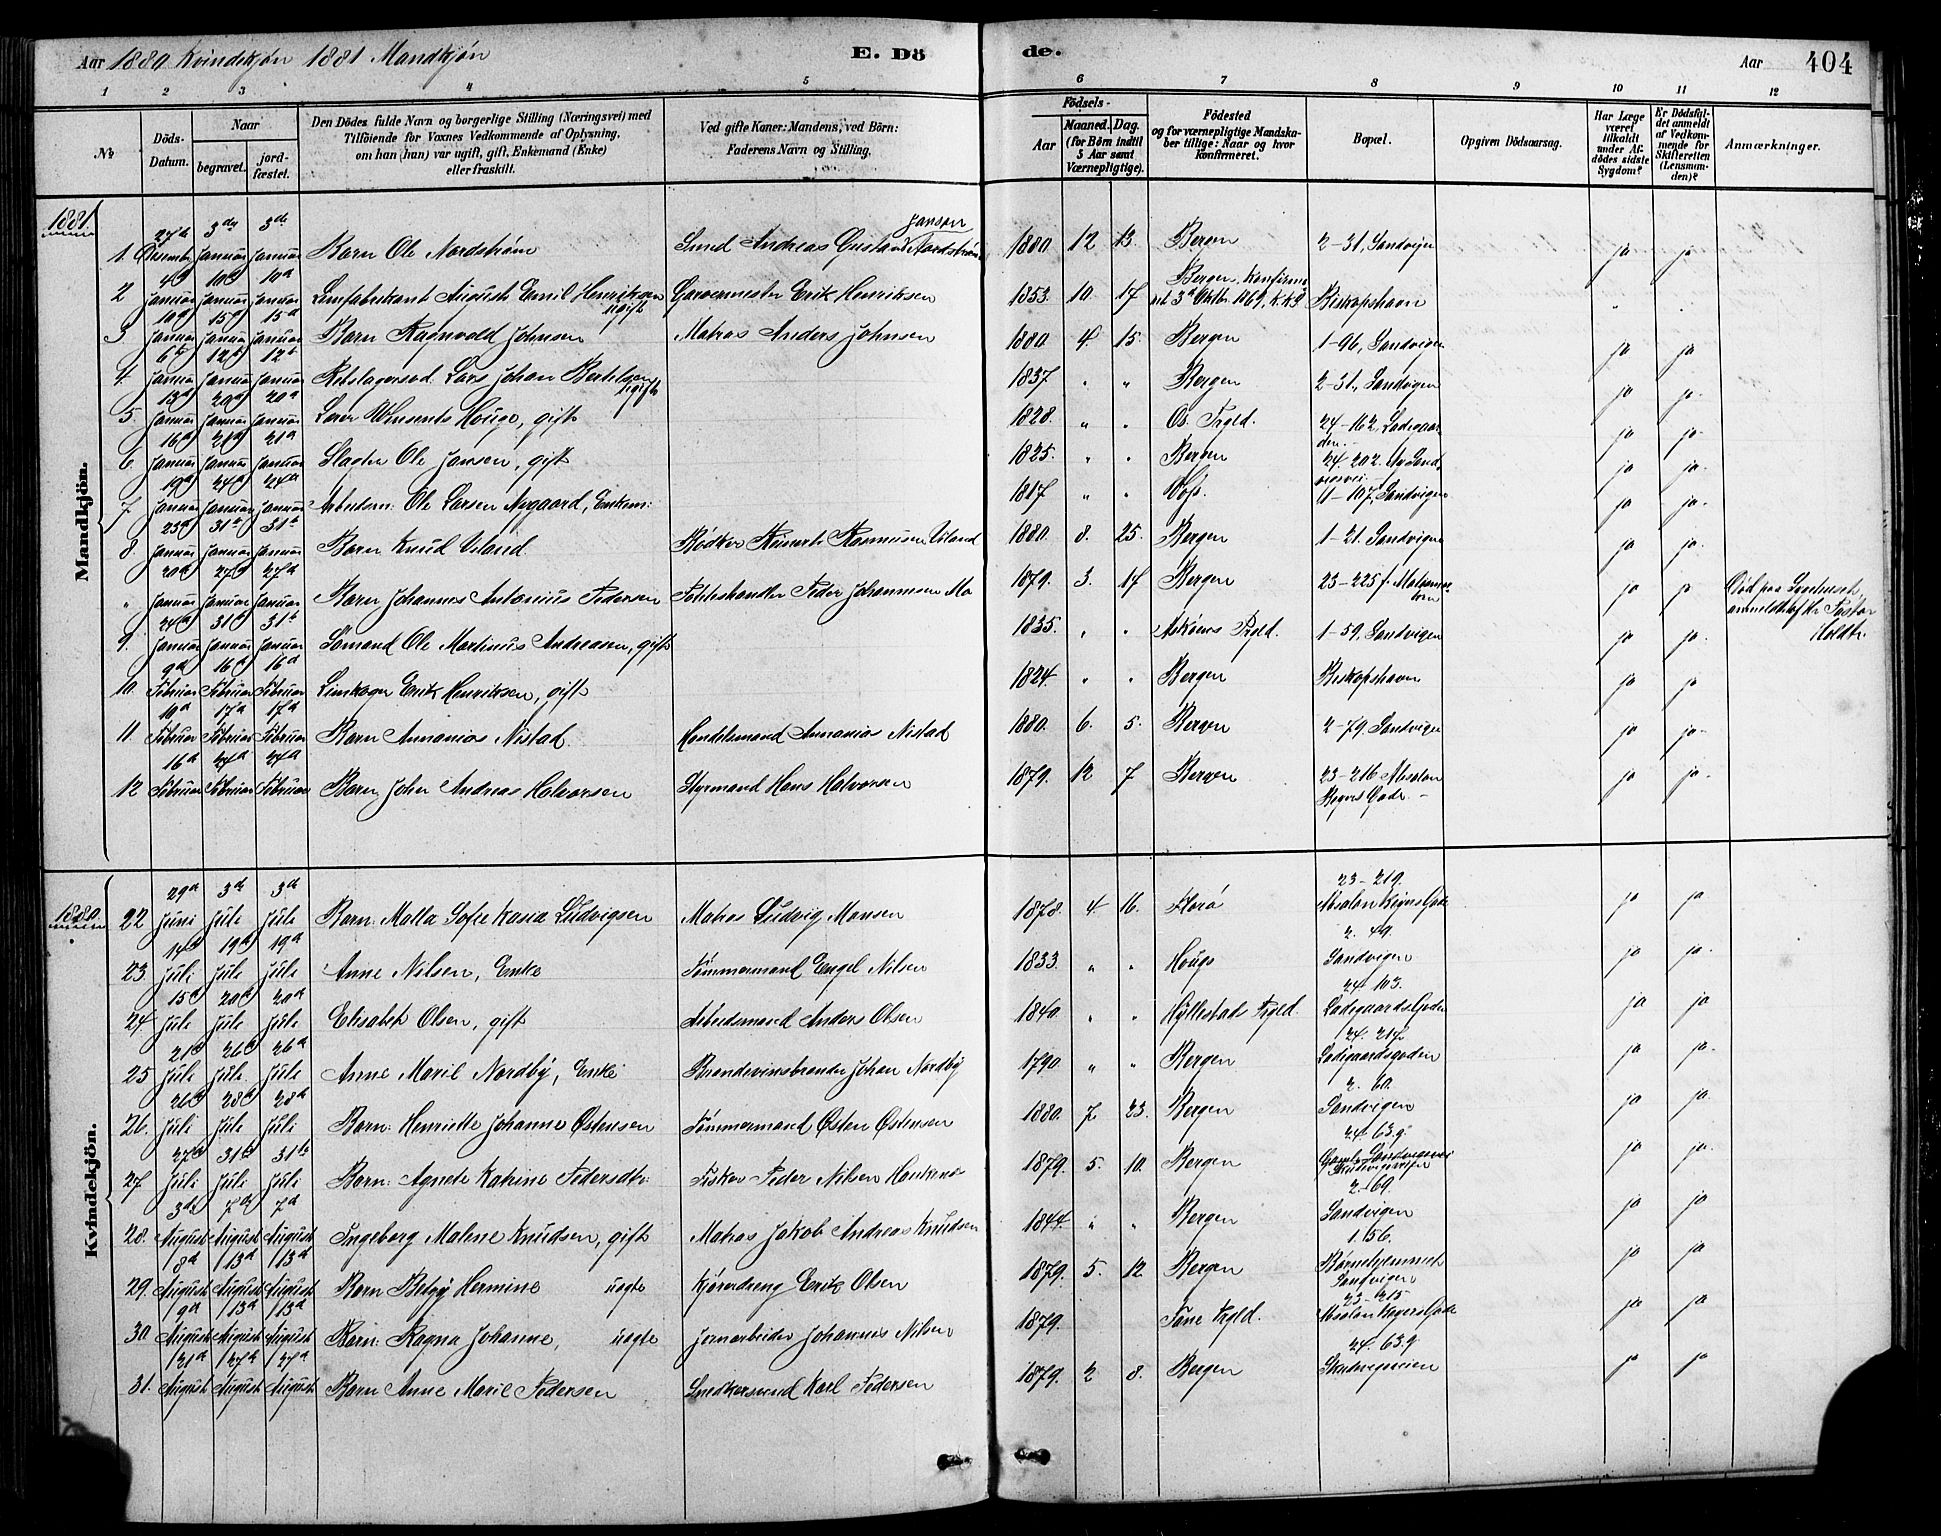 Aar 1880 Kvindekjøn 1881 Mandkjøn E. Dö de. Aar 404
1 2 3 4 5 6 7 8 9 10 11 12
No
Döds-Datum.
Naar
begravet.
jord-fæstet.
Den Dödes fulde Navn og borgerlige Stilling (Næringsvei) med
Tilföiende for Voxnes Vedkommende af Oplysning,
om han (hun) var ugift, gift, Enkemand (Enke)
eller fraskilt.
Ved gifte Koner: Mandens, ved Börn:
Faderens Navn og Stilling.
Födsels-
Aar
Maaned. Dag.
(for Börn indtil
5 Aar samt
Værnepligtige).
Födested
og for værnepligtige Mandska-
ber tillige: Naar og hvor
konfirmeret.
Bopæl.
Opgiven Dödsaarsag.
Har Læge
været
tilkaldt
under Af-
dödes sidste
Sygdom?
Er Dödsfal-
det anmeldt
af Vedkom-
mende for
Skifteretten
(Lensman-
den)?
Anmærkninger.
1881.
Mandkjön.
1. 27de Desember 3die Januar 3de Januar Barn Ole Nordstrøm Smed Andreas Gustav Janson Nordstrøm 1880 12 13. Bergen 2-31, Sandvigen ja ja
2 4d Januar 10d Januar 10d Januar Limfabrikant August Emil Henriksen ugift Garvermester Erik Henriksen 1853. 10. 17 Bergen, Konfirme- ret 3d Oktbr. 1869, K.K. Biskopshavn
3 10d Januar 15d Januar 15d Januar Barn Ragnvald Johnsen Matros Anders Johnsen 1880. 4. 15. Bergen 1-96, Sandvigen ja ja
4. 6t Januar 12t Januar 12t Januar Rebslagersvd. Lars Johan Bertelsen ugift 1837 " " Bergen 2-31, Sandvigen ja ja
5. 13d Januar 20d Januar 20d Januar Hougo, gift 1828. " " Os. Prgld. 24-162, Ladegaar den. ja ja
6. 16d Januar 21d Januar 21d Januar Slagter Ole Jansen, gift 1825. " " Bergen 24. 202. ja ja
7 19d Januar 24d Januar 24d Januar Arbeidsm: Ole Larsen Nygaard, Enkem: 1817 " " Vos. 11-107, Sandvigen ja ja
8. 25d Januar 31t Januar 31t Januar Barn Knud Urland Bødker Rasmussen Urland 1880. 8. 25. Bergen 1-21. Sandvigen ja ja
" 20d Januar 27d Januar 27d Januar Barn Johannes Antonius Pedersen Peder Johannesen Mo 1879. 3. 17 Bergen 23-225 f. ja ja Død paa anmeldt af Hr. Pastor Holdt.
9. 24d Januar 31t Januar 31t Januar Sømand Ole Martinus Andreasen, gift 1835. " " Askøens Prgld. 1-59. Sandvigen ja ja
10. 9d Februar 16d Februar 16d Februar Erik Henriksen, gift 1824. " " Bergen Biskopshavn ja ja
11. 10d Februar 17d Februar 17d Februar Barn Annanias Nistad Handelsmand Annanias Nistad 1880. 6. 5. Bergen 2-79. Sandvigen ja ja
12 16d Februar 24d Februar 24d Februar Barn John Andreas Halvorsen Styrmand Hans Halvorsen 1879. 12 7 Bergen 23-216 Absalon Beyers Gade. ja ja
1880.
Kvindekjön.
22 29d Juni 3d Juli 3d Juli Barn: Malla Sofie Kasia Ludvigsen Matros Ludvig Monsen 1878. 4. 16. Florø 23-219. Absalon Beyers Gade ja ja
23 14d Juli 19d Juli 19d Juli Anne Nilsen, Enke Tømmermand Engel Nilsen 1833. " " Hougs 2. 49. Sandvigen ja ja
24 15d Juli 20d Juli 20d Juli Elisabet Olsen, gift Arbeidsmand Anders Olsen 1840. " " Hyllestads Prgld. 24. 103. Ladegaards Gaden ja ja
25 21d Juli 26d Juli 26d Juli Anne Marie Nordby, Enke Brændevinsbrænder Johan Nordby 1790. " " Bergen 24. 217 Ladegaardsgaden ja ja
26. 26d Juli 28d Juli 28d Juli Barn: Henriette Johanne Østensen Tømmermand Østen Østensen 1880. 7. 23. Bergen 2. 60. Sandvigen ja ja
27 27d Juli 31te Juli 31te Juli Barn: Agnete Katrine Pedersdtr. Fisker Peder Nilsen 1879. 5. 10. Bergen 24. 63. g. ja ja
28. 3die August 7d August 7d August Ingeborg Malene Knudsen, gift Matros Jakob Andreas Knudsen 1844. " " Bergen 2.-69. Sandvigen ja ja
29. 8d August 13d August 13d August Barn Betsy Hermine uægte Kjøredreng Erik Olsen 1879. 5. 12. Bergen 1. 156. Børnehjemmet Sandvigen ja ja
30. 9d August 13d August 13d August Barn: Ragna Johanne, uægte Jernarbeider Johannes Nilsen 1879. Prgld. 23-215 Absalon Beyers Gade ja ja
31. 21d August 27d August 27d August Barn Anne Marie Pedersen Snedkersvend Karl Pedersen 1879. 2 8. Bergen 24. 63. g. Skutevigsveien ja ja